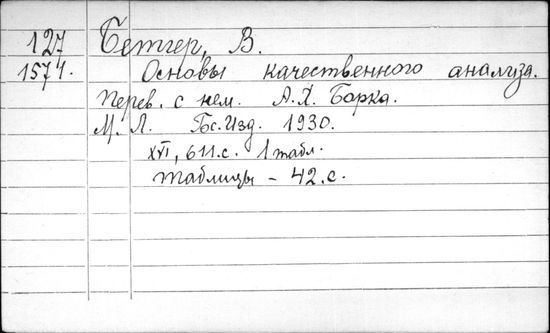 127 Бетгер, В.
1574. Основы качественного анализа.
Перев. с нем. А.Х. Борка.
М. Л. Гс.Изд. 1930.
XVI, 611.с. 1 табл.
таблицы - 42.с.